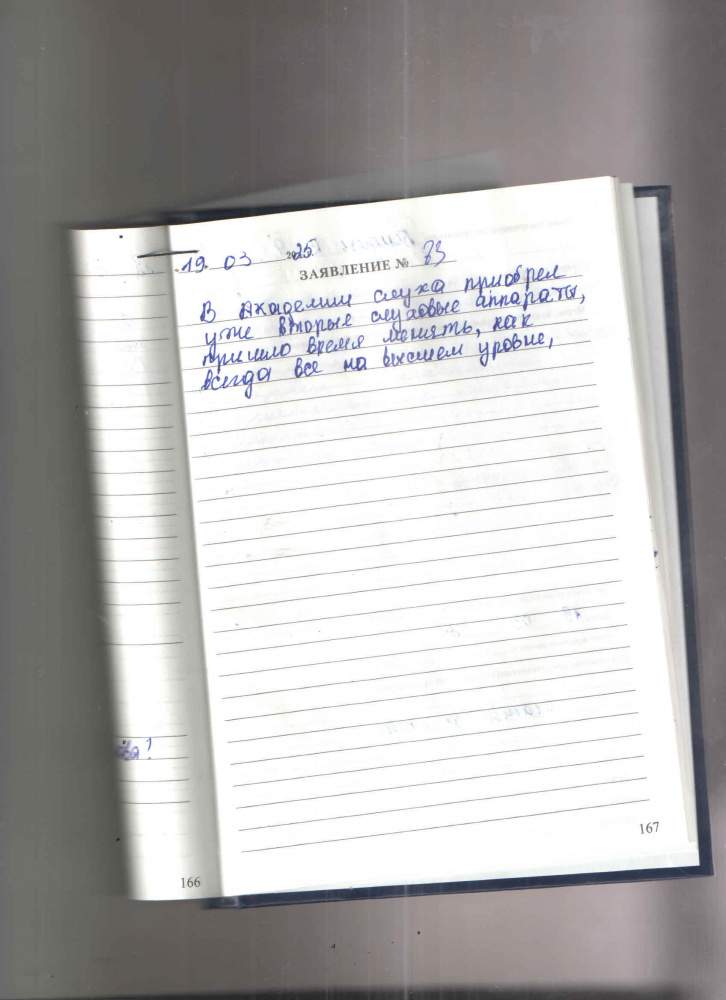 19. 03 2025
ЗАЯВЛЕНИЕ № 83
В Академии слуха приобрел
уже вторые слуховые аппараты,
пришло время менять, как
всегда все на высшем уровне,
166
167